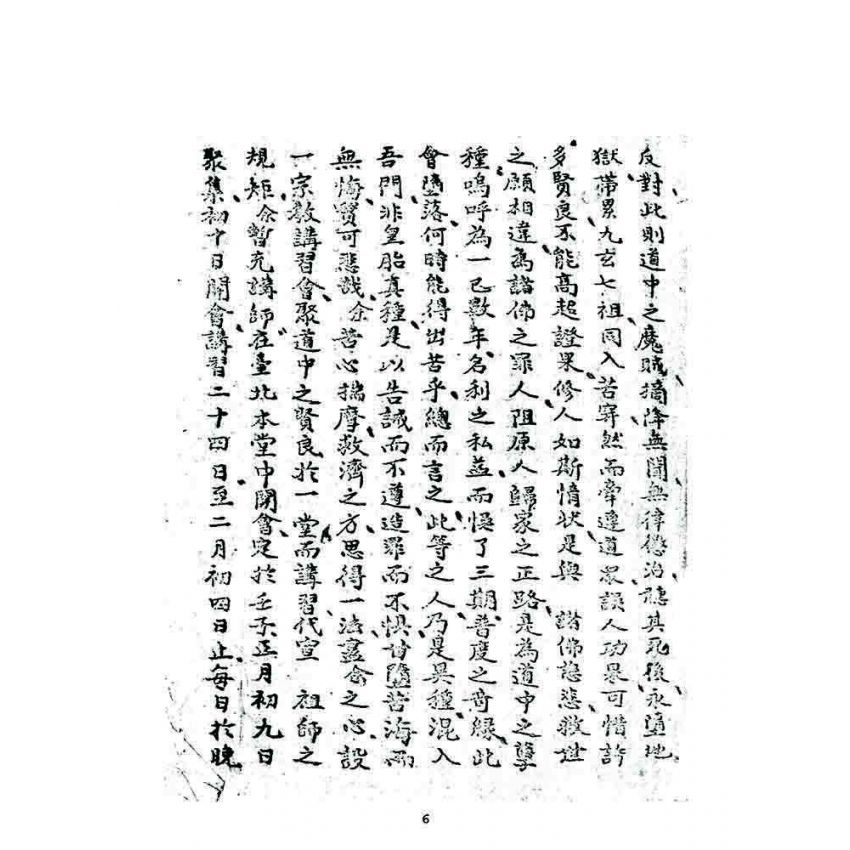 反對此則道中之魔賊摘降無聞無律懲治聽其死後永墮地
獄帶累九玄七祖同入苦穽然而牽連道眾誤人功果可惜許
多賢良不能高超證果修人如斯情狀是與　諸佛慈悲救世
之願相違為諸佛之罪人阻原人歸家之正路是為道中之孽
種嗚呼為一已數年名利之私益而悞了三期普度之奇緣此
會墮落何時能得出苦乎總而言之此等之人乃是異種混入
吾門非皇胎真種是以告誡而不遵造罪而不惧甘墮苦海而
無悔實可悲哉余苦心揣摩救濟之方思得一法盡余之心設
一宗教講習會聚道中之賢良於一堂而講習代宣　祖師之
規矩余暫充講師在臺北本堂中開會定於壬子正月初九日
聚集初十日開會講習二十四日至二月初四日止每日於晚
6